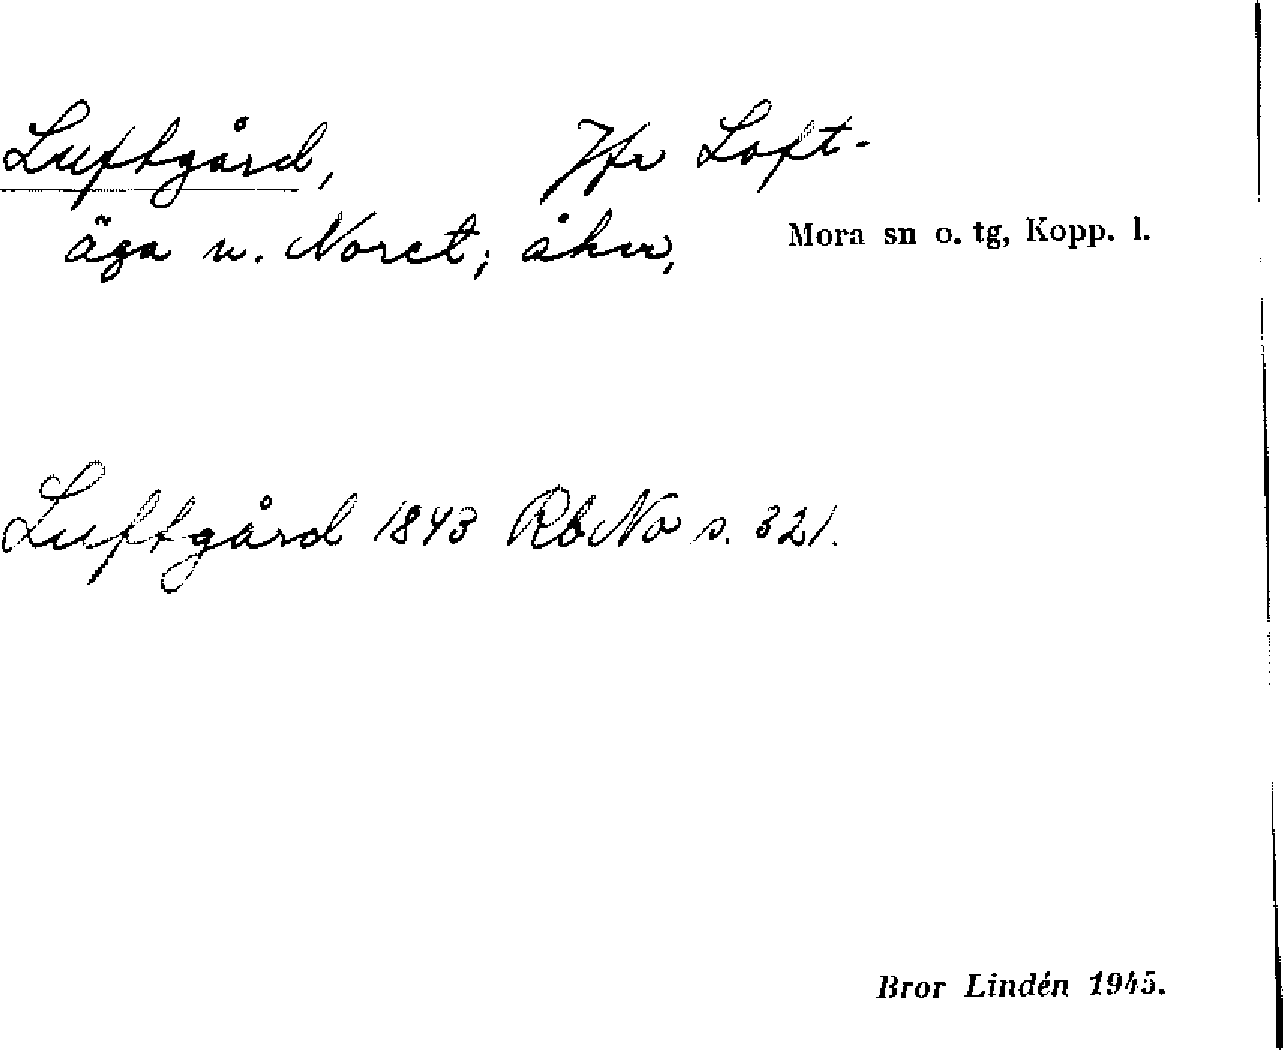 Luftgård, Jfr Loft-
äga u. Noret; åker,
Mora sn o. tg, Kopp. l.
Luftgård 1843 RbNo s. 321.
Bror Lindén 1945.